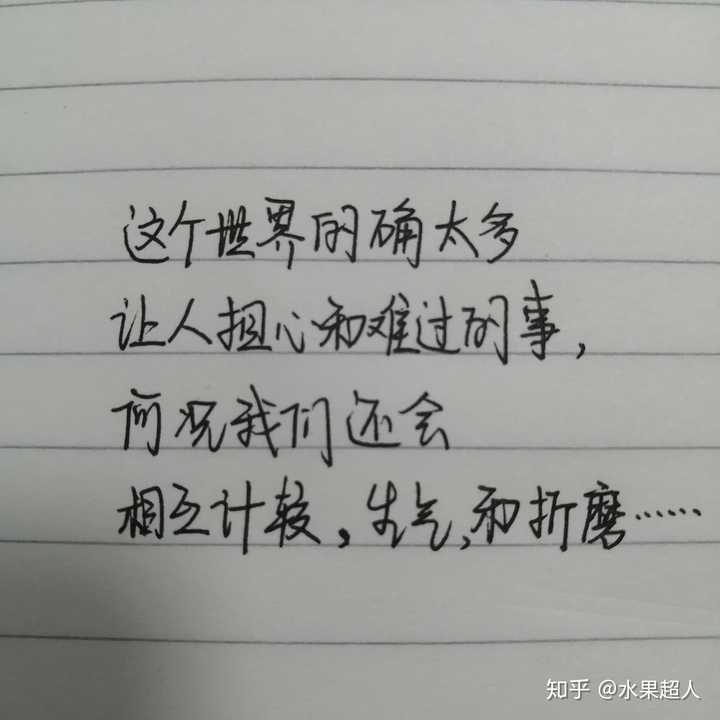 这个世界的确太多
让人担心和难过的事，
何况我们还会
相互计较，生气，和折磨……
知乎 @水果超人